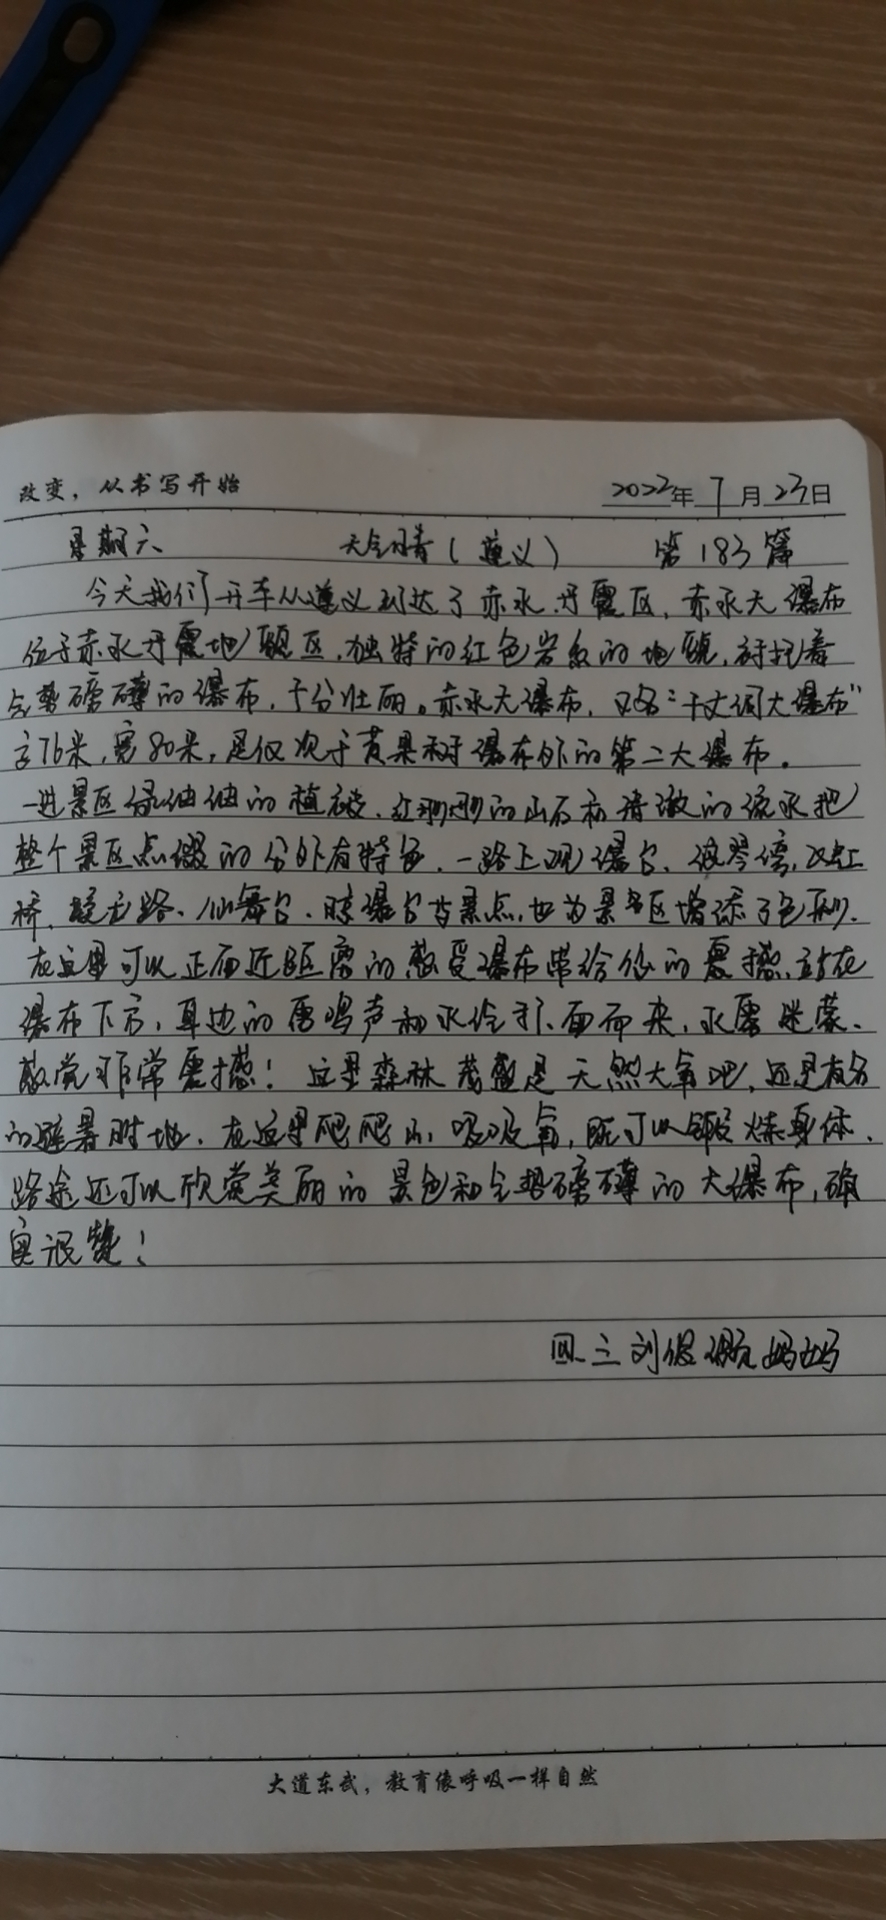 改变，从书写开始
2022年7月23日
星期六 天气晴（遵义） 第183篇
今天我们开车从遵义到达了赤水丹霞区，赤水大瀑布
位于赤水丹霞地貌区，独特的红色岩系的地貌，衬托着
气势磅礴的瀑布，十分壮丽。赤水大瀑布，又名“十丈洞大瀑布”
高76米，宽80米，是仅次于黄果树瀑布外的第二大瀑布。
一进景区绿油油的植被、红彤彤的山石和清澈的流水把
整个景区点缀的分外有特色，一路上观瀑台、
桥、路、仙舞台、听瀑台等景点，也为景区增添了色彩。
在这里可以正面近距离的感受瀑布带给你的震撼，站在
瀑布下方，耳边的雷鸣声和水丝扑面而来，水雾迷蒙，
感觉非常震撼！这里森林茂盛是天然大氧吧，还是有名
的避暑胜地，在这里爬爬山，吸吸氧，既可以锻炼身体，
路途还可以欣赏美丽的景色和气势磅礴的大瀑布，确
实很赞！
四.三刘妈妈
大道东武，教育像呼吸一样自然